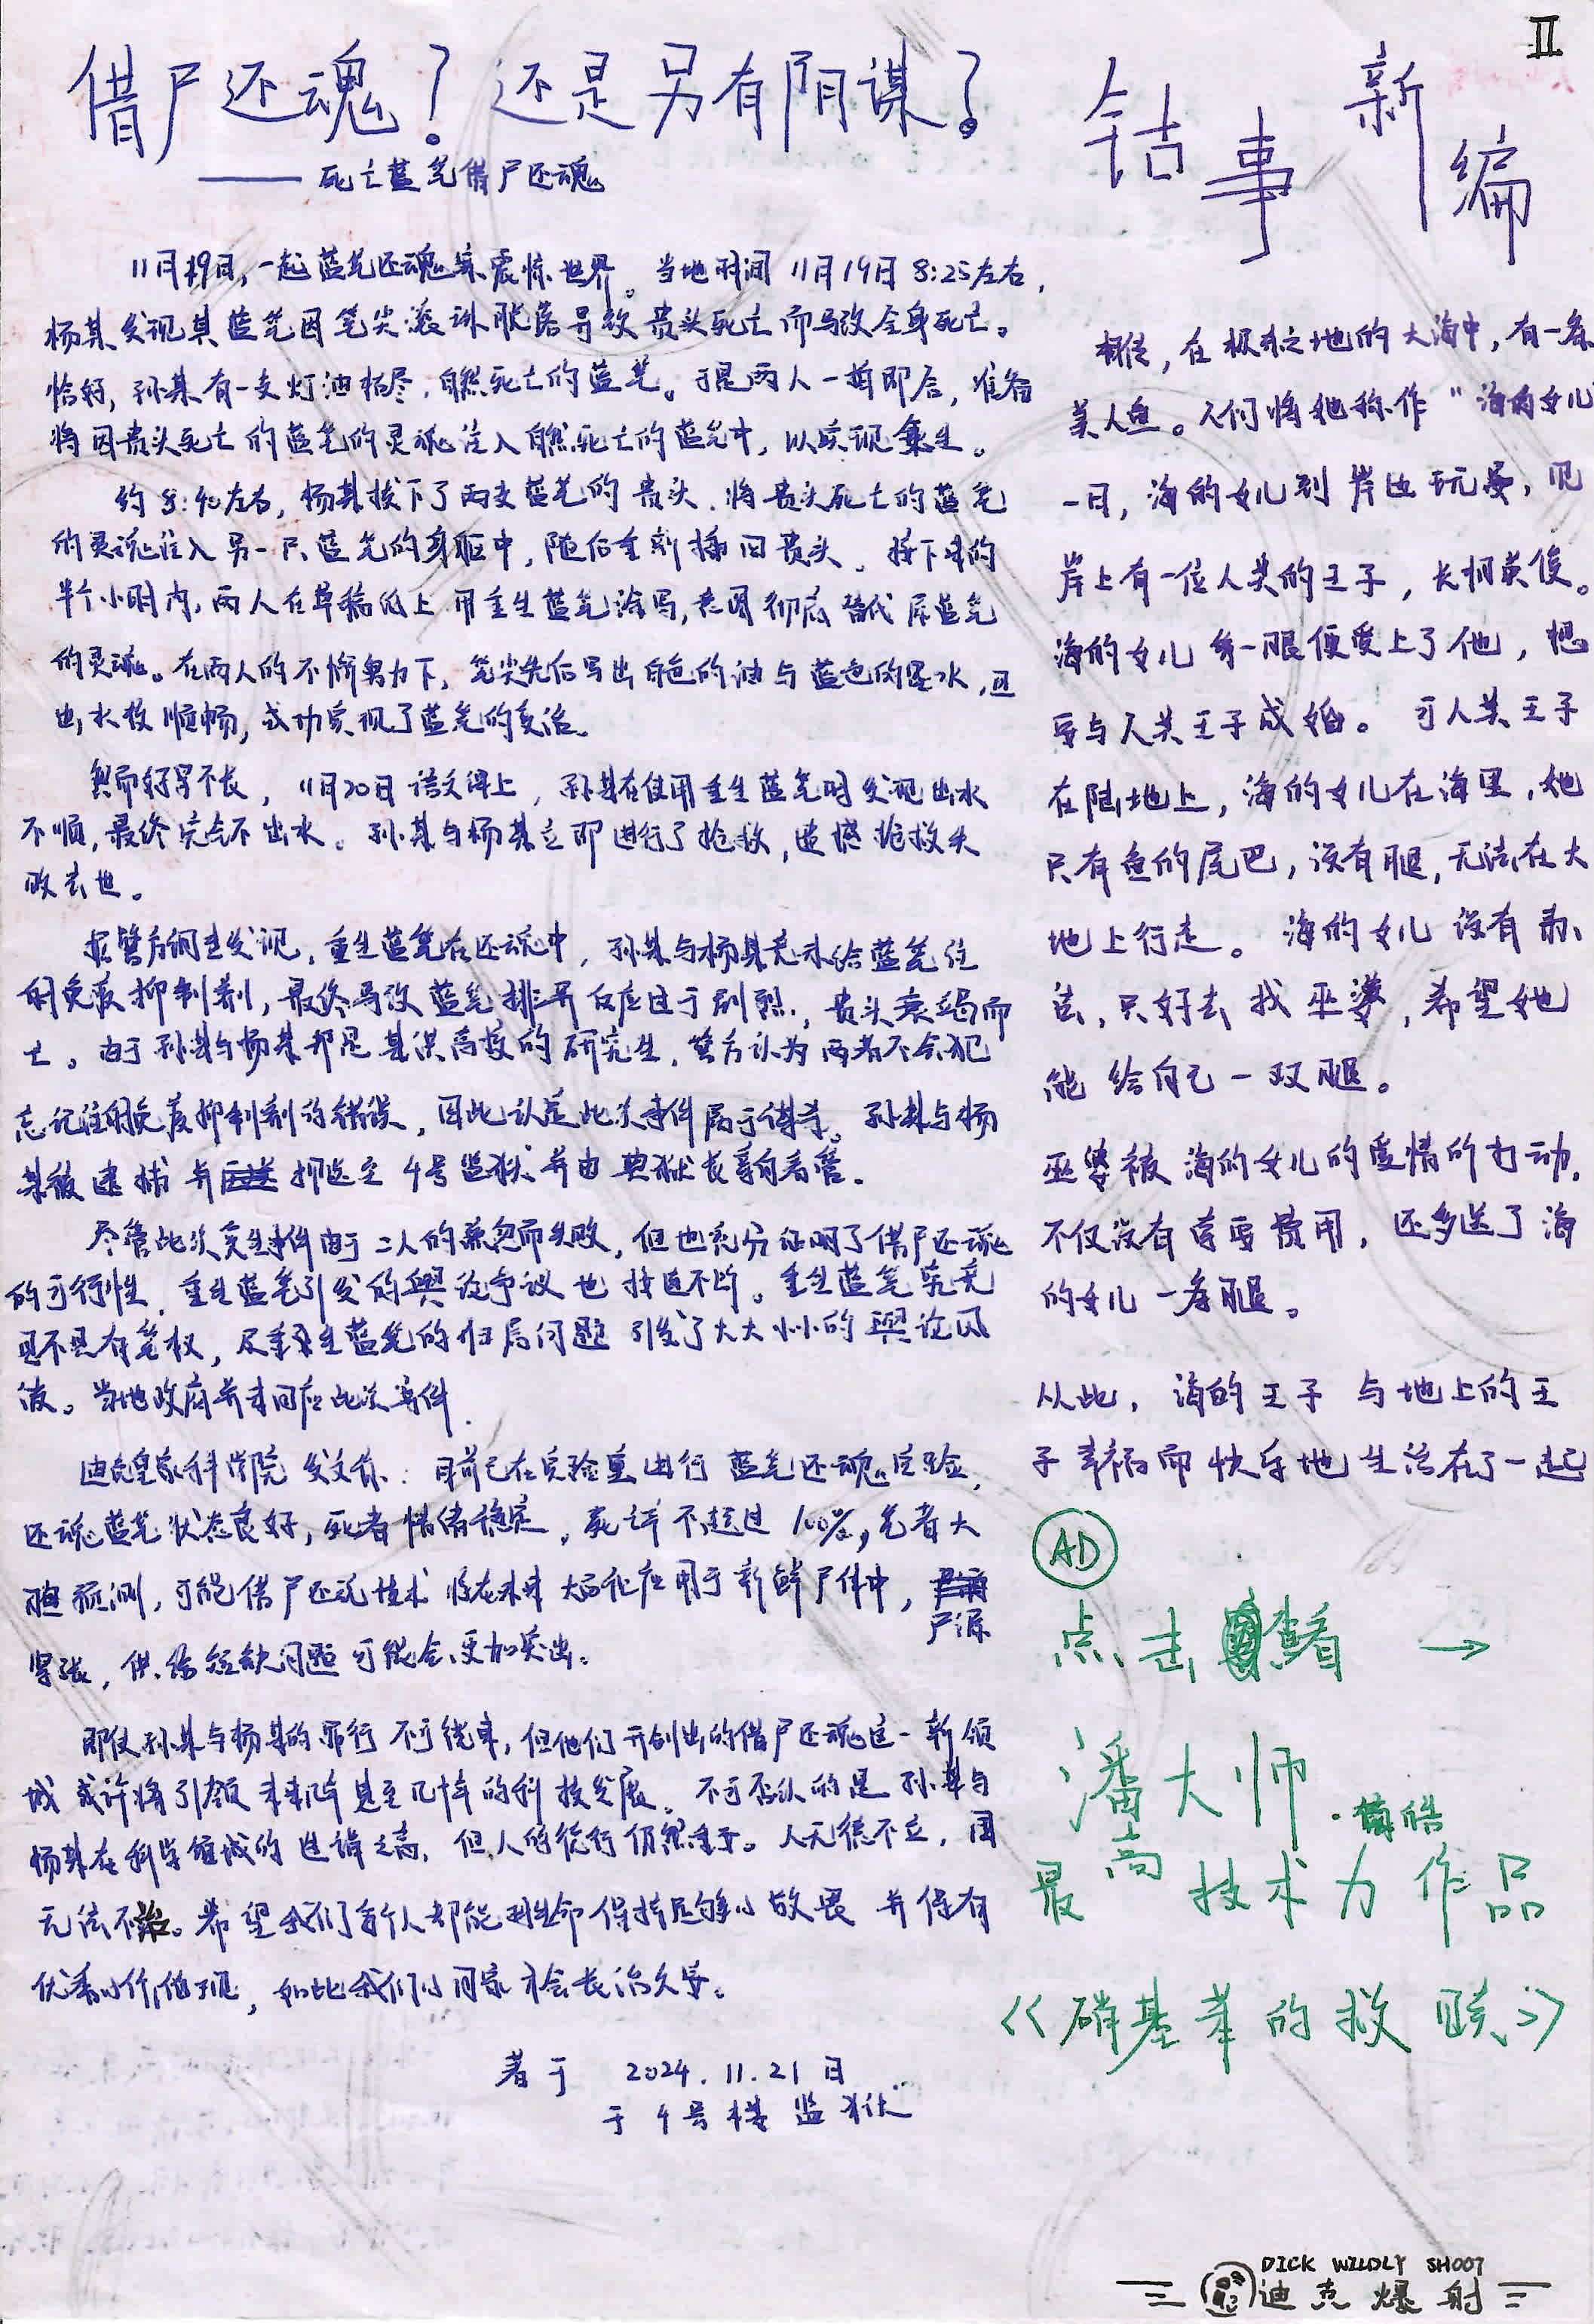 II
借尸还魂？还是另有阴谋？
——死亡蓝笔借尸还魂
11月19日，一起蓝笔还魂案震惊世界。当地时间11月19日8:25左右，
杨某发现其蓝笔因笔尖滚珠脱落导致贵头死亡而导致全身死亡。
恰好，孙某有一支灯油枯尽，自然死亡的蓝笔。于是两人一拍即合，准备
将因贵头死亡的蓝笔的灵魂注入自然死亡的蓝笔中，以实现重生。
约8:40左右，杨某拔下了两支蓝笔的贵头，将贵头死亡的蓝笔
的灵魂注入另一只蓝笔的身躯中，随后重新插回贵头。接下来的
半个小时内，两人在草稿纸上用重生蓝笔涂写，意图彻底替代原蓝笔
的灵魂。在两人的不懈努力下，笔尖先后写出白色的油与蓝色的墨水，且
出水较顺畅，成功实现了蓝笔的复活。
然而好景不长，11月20日语文课上，孙某在使用重生蓝笔时发现出水
不顺，最终完全不出水。孙某与杨某立即进行了抢救，遗憾抢救失
败去世。
据警方调查发现，重生蓝笔在还魂中，孙某与杨某未给蓝笔注
射免疫抑制剂，最终导致蓝笔排异反应过于剧烈，贵头衰竭而
亡。由于孙某与杨某都是某洪高校的研究生，警方认为两者不会犯
忘记注射免疫抑制剂的错误，因此认定此次事件属于谋杀。孙某与杨
某被逮捕并押送至4号监狱并由典狱长亲自看管。
尽管此次复生事件由于二人的疏忽而失败，但也充分证明了借尸还魂
的可行性，重生蓝笔引发的舆论争议也接连不断。重生蓝笔究竟
具不具有笔权，及重生蓝笔的归属问题引发了大大小小的舆论风
波。当地政府并未回应此次事件。
迪克皇家科学院发文称：目前已在实验室进行蓝笔还魂实验，
还魂蓝笔状态良好，死者情绪稳定，死详不超过100%，笔者大
胆预测，可能借尸还魂技术将在未来大面积应用于新鲜尸体中，尸源
紧张，供给短缺问题可能会更加突出。
即使孙某与杨某的罪行不可饶恕，但他们开创出的借尸还魂这一新领
域或许将引领未来几年甚至几十年的科技发展。不可否认的是孙某与
杨某在科学领域的造诣之高，但人的德行仍然重于。人无德不立，国
无法不治。希望我们每个人都能对生命保持足够的敬畏并保有
优秀的价值观，如此我们的国家才会长治久安。
著于 2024.11.21日
于4号楼监狱
钴事新编
相传，在极东之地的大海中，有一条
美人鱼。人们将她称作“海的女儿
一日，海的女儿到岸边玩耍，见
岸上有一位人类的王子，长相英俊。
海的女儿第一眼便爱上了他，想
要与人类王子成婚。可人类王子
在陆地上，海的女儿在海里，她
只有鱼的尾巴，没有腿，无法在大
地上行走。海的女儿没有办
法，只好去找巫婆，希望她
能给自己一双腿。
巫婆被海的女儿的爱情所打动，
不仅没有索要费用，还多送了海
的女儿一条腿。
从此，海的王子与地上的王
子幸福而快乐地生活在了一起
AD
点击查看 →
潘大师·
最高技术力作品
《硝基苯的救赎》
DICK WILDLY SHOOT
迪克爆射